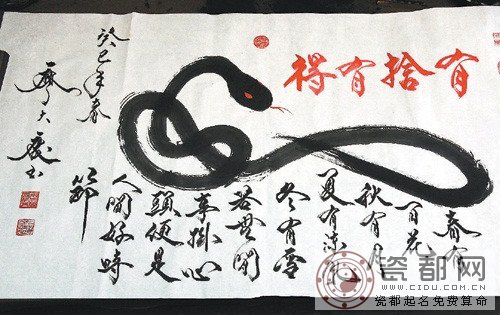 有捨有得
春有
百花
秋有月
夏有凉風
冬有雪
若無閑
事掛心
頭便是
人間好時
節
癸巳年春
瓷都网
WWW.CIDU.COM.CN
瓷都起名免费算命